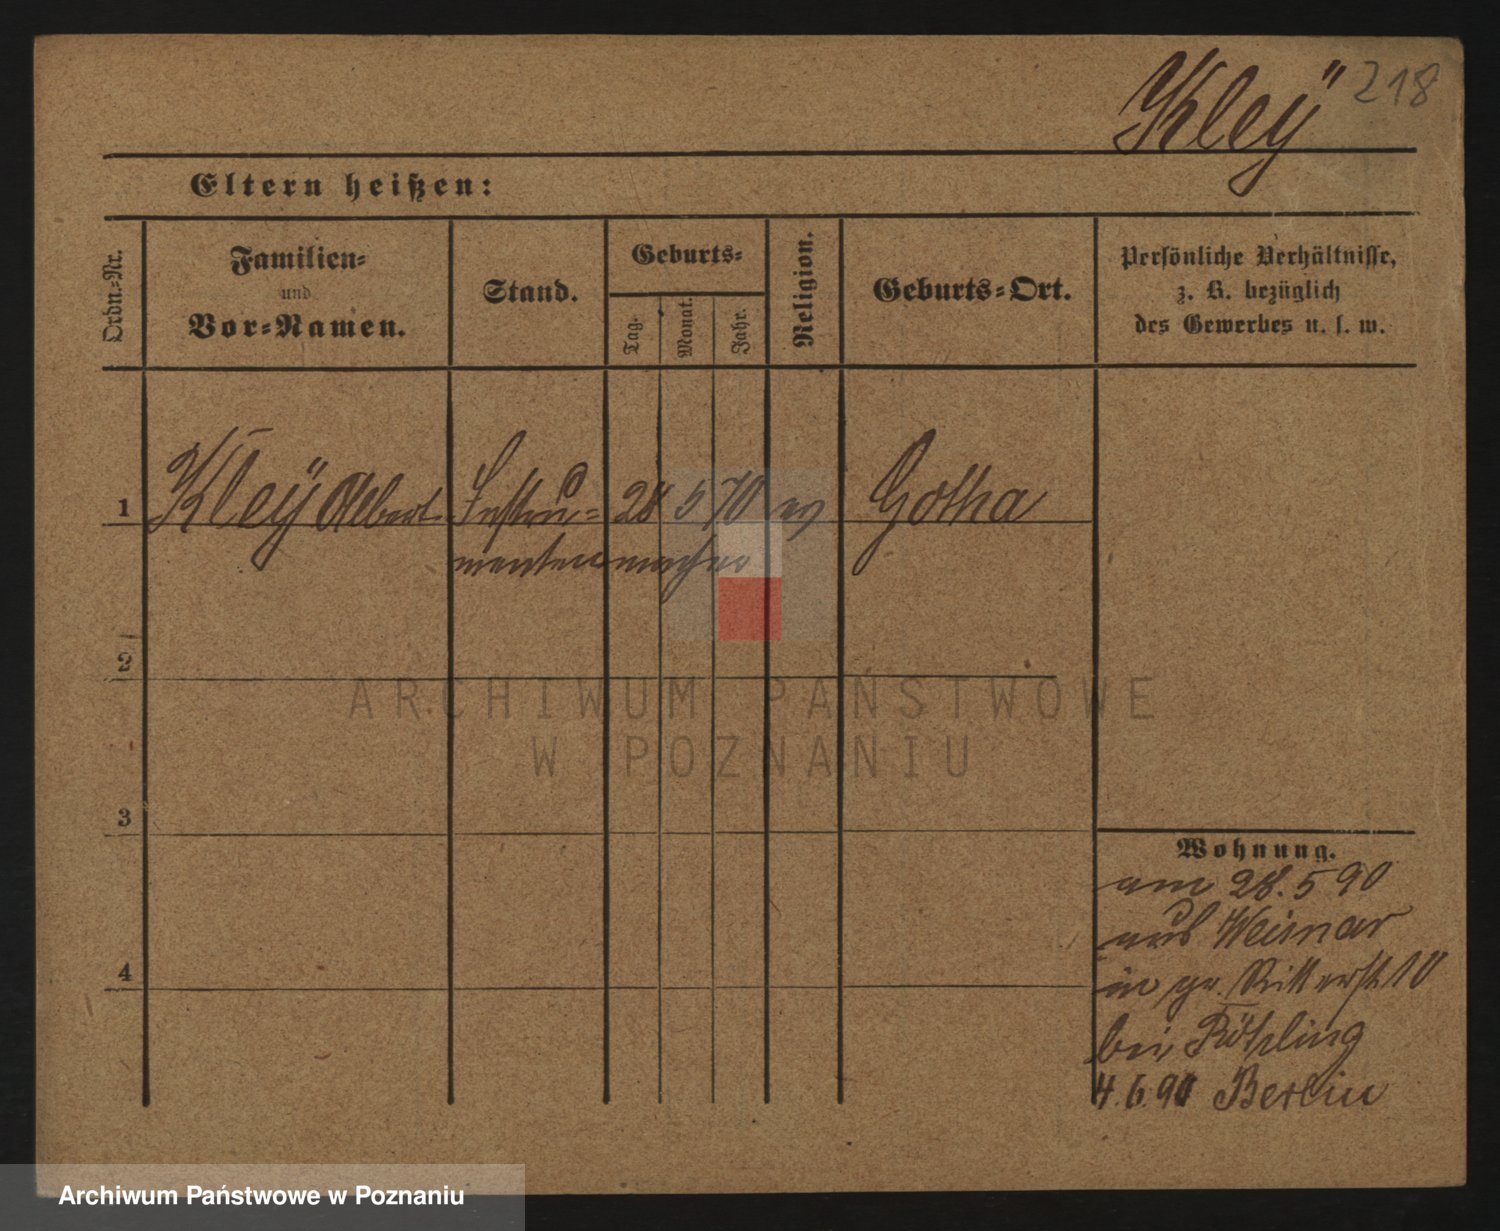 Kleÿ 218
Eltern heißen:
Ordn.-Nr.
Familien-
und
Vor-Namen.
Stand.
Geburts-
Tag.
Monat.
Jahr.
Religion.
Geburts-Ort.
Persönliche Verhältnisse,
z. B. bezüglich
des Gewerbes u. s. w.
1 Kleÿ Albert Instru- 28 5 70 ev Gotha
mentenmacher
2
3
4
Wohnung.
am 28. 5 90
aus Weimar
in gr. Ritterst. 10
bei
4.6.90 Berlin
ARCHIWUM PAŃSTWOWE
W POZNANIU
Archiwum Państwowe w Poznaniu